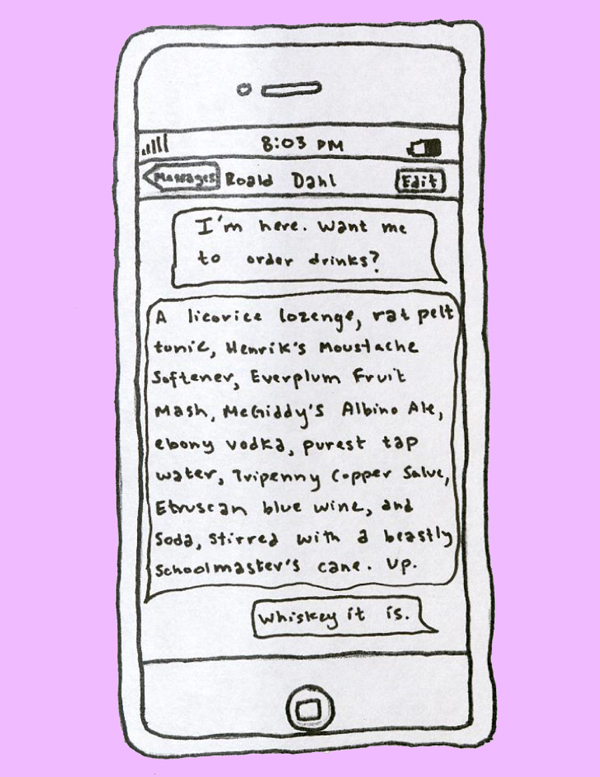 8:03 PM
Messages Roald Dahl Edit
I'm here. Want me
to order drinks?
A licorice lozenge, rat pelt
tunic, Henrik's Moustache
Softener, Everplum Fruit
Mash, McGiddy's Albino Ale,
ebony vodka, purest tap
water, Tripenny Copper Salve,
Etruscan blue wine, and
Soda, stirred with a beastly
Schoolmaster's cane. Up.
Whiskey it is.